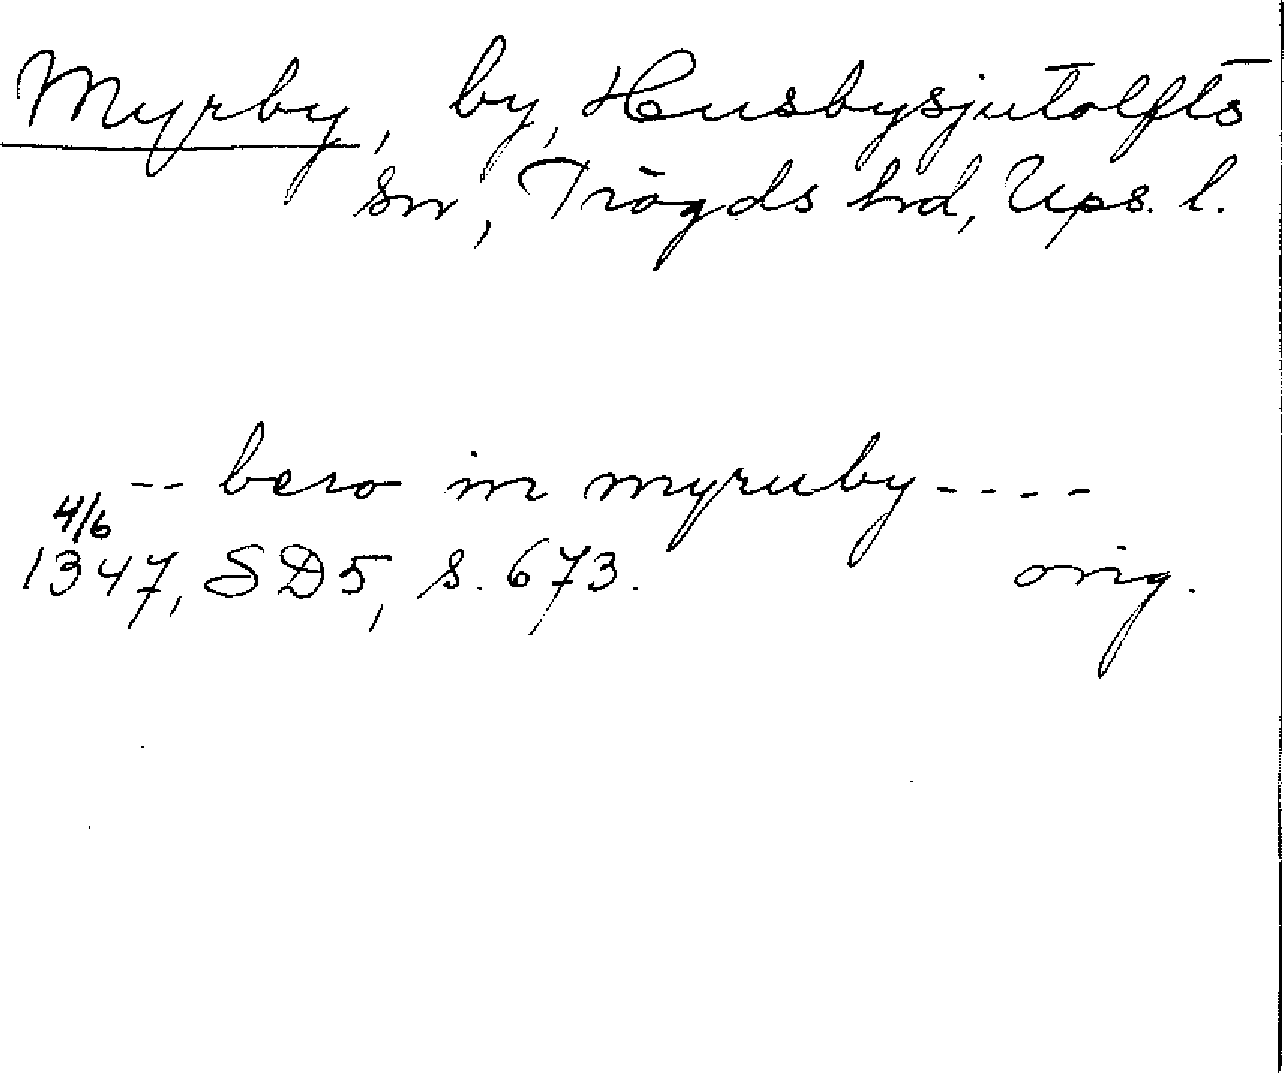 Myrby, by, Husbysjutolfts
sn, Trögds hrd, Ups. l.
-- bero in myruby ----
4/6
1347, SD5, s. 673. orig.